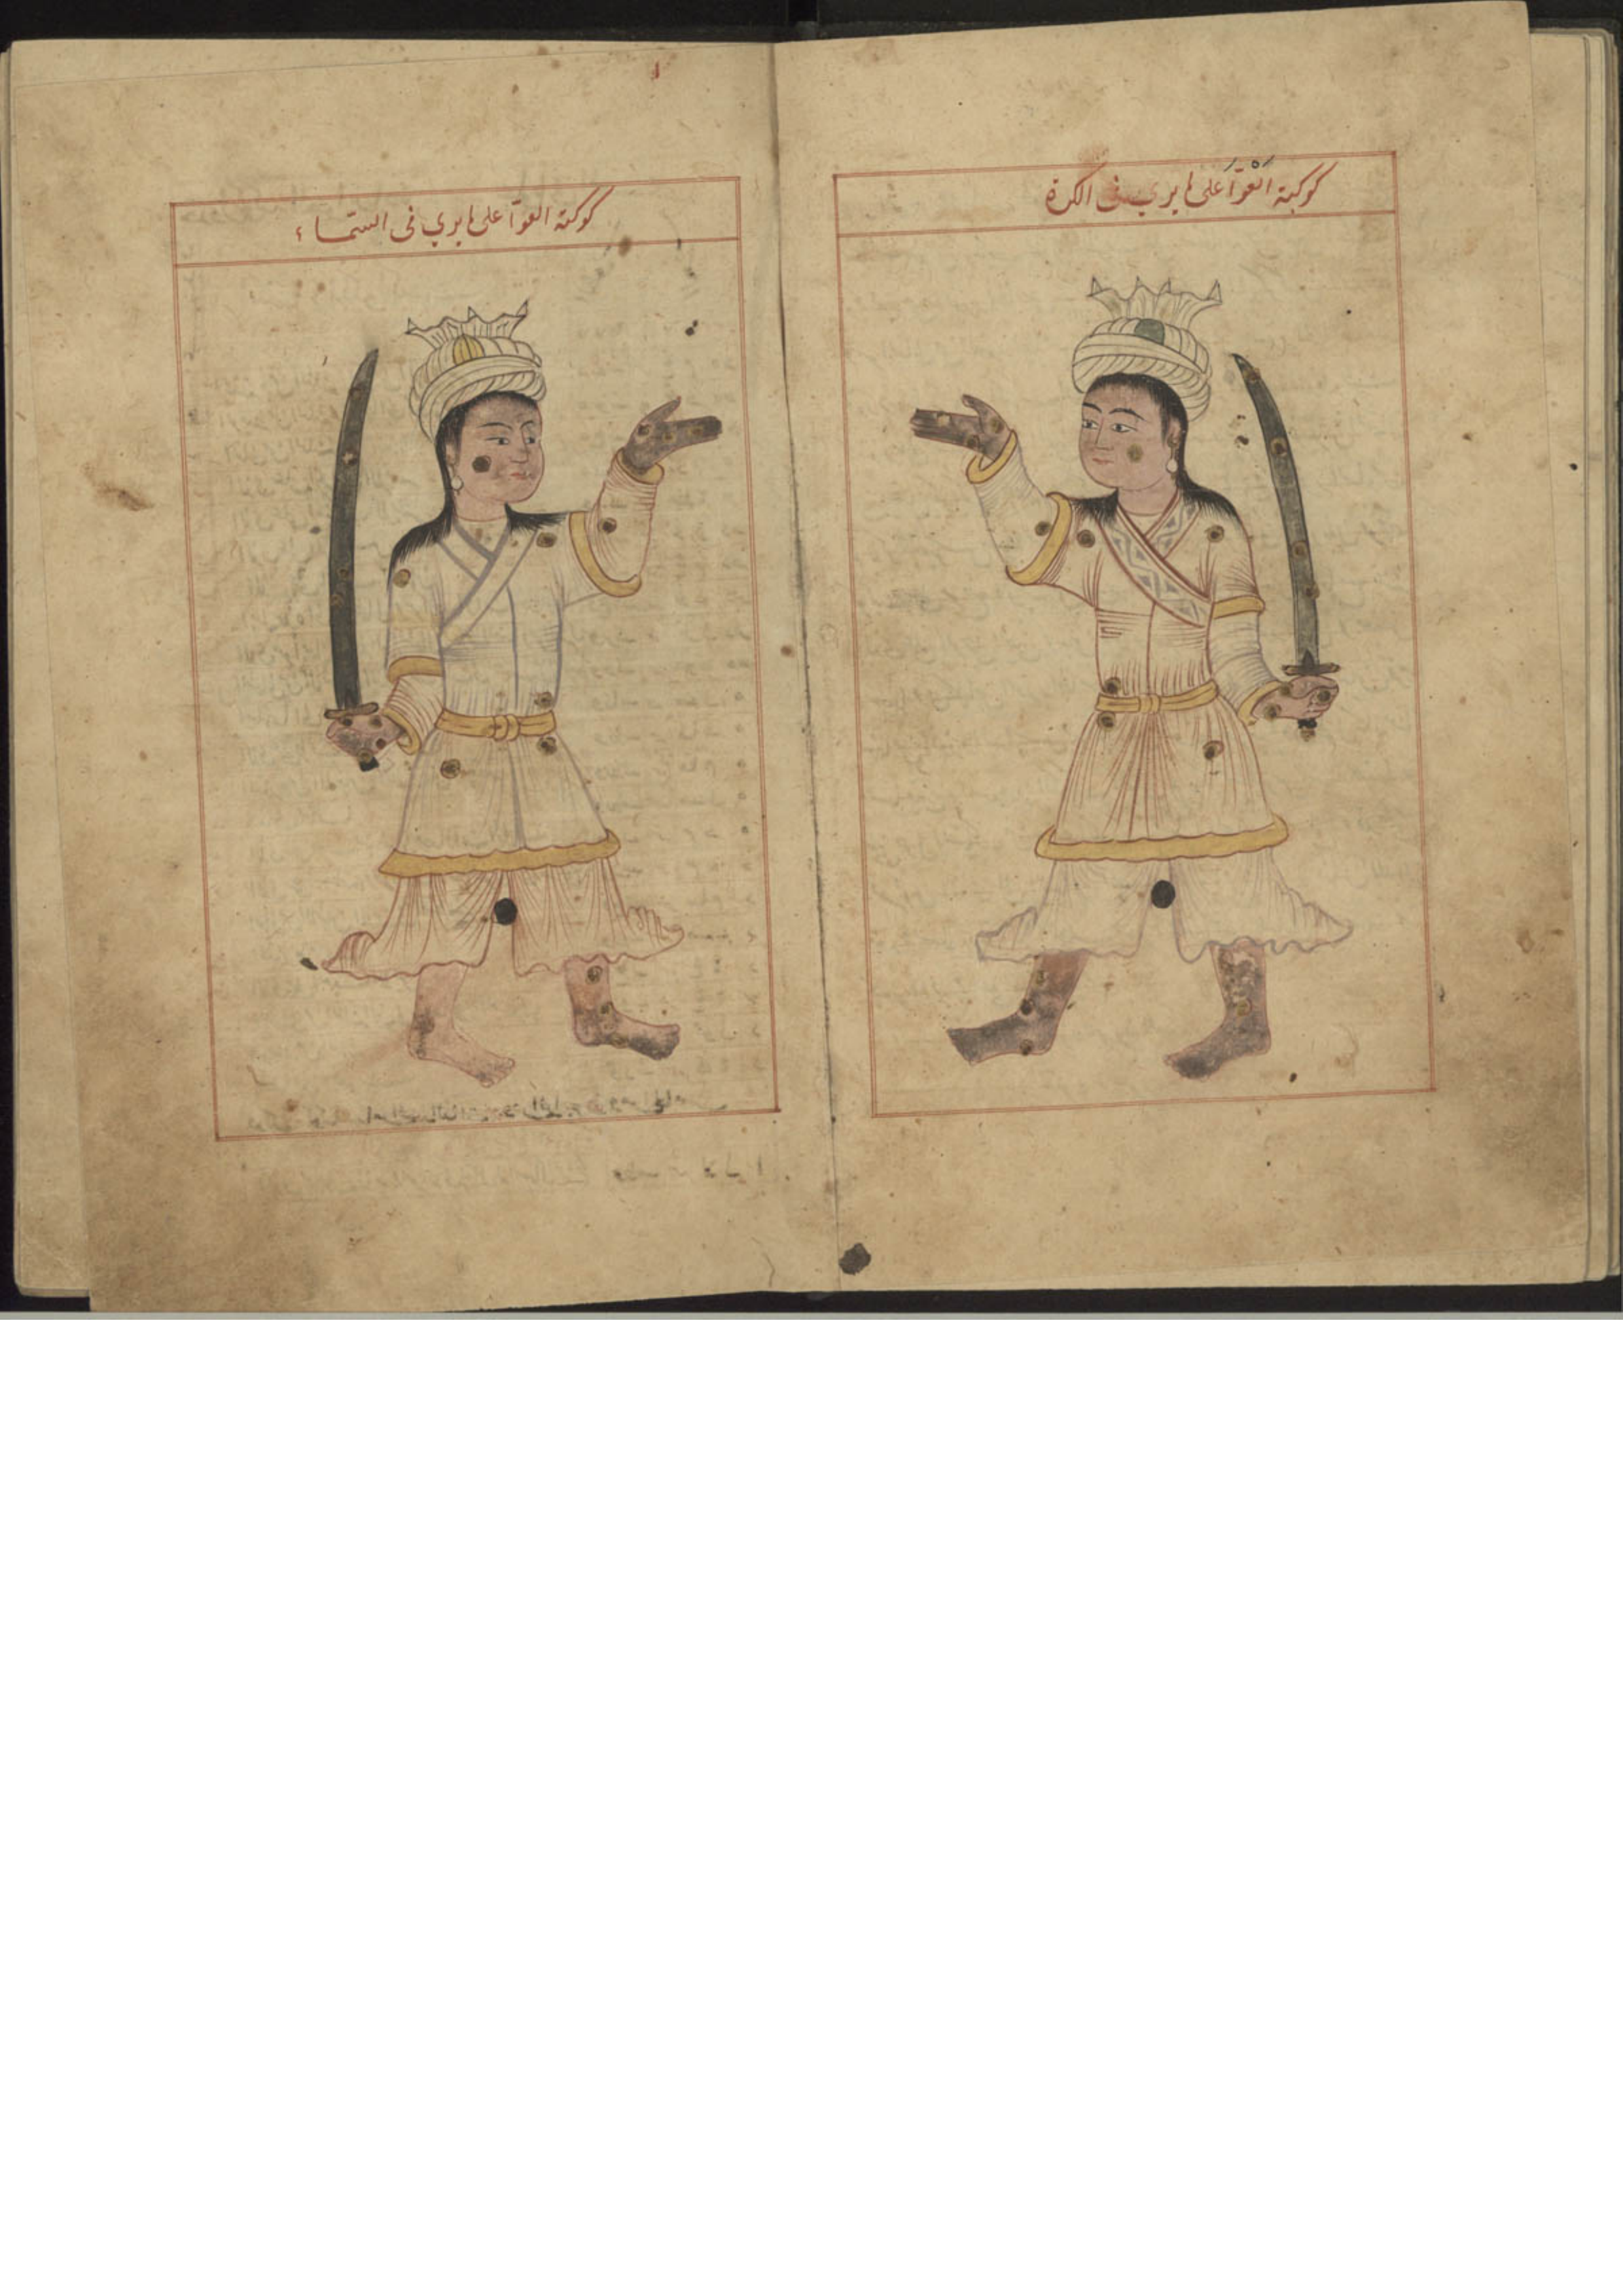 كوكبة العَوَّا على ما يرى في الكرة
كوكبة العوّا على ما يرى في السّماء